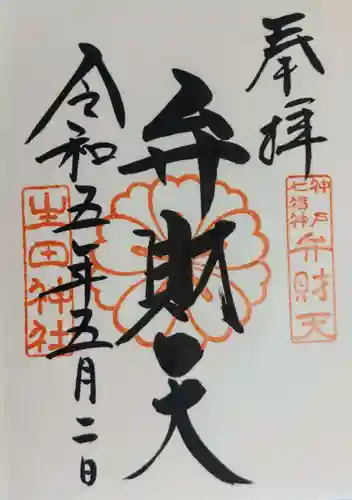 奉拝
神戸七福神
弁財天
弁財天
令和五年五月二日
生田神社